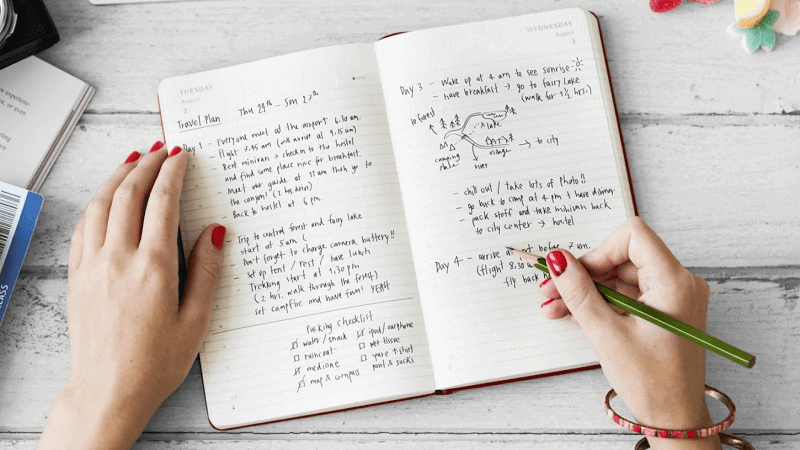 TUESDAY
August
2
Thu 24th - Sun 27th
Travel Plan
Day 1 - Everyone meet at the airport 6.30 am.
- flight 7.45 am (will arrive at 9.15 am)
- Rent minivan → checkin to the hostel
and find some place nice for breakfast.
- Meet our guide at 11 am then go to
the canyon! (2 hrs drive)
- Back to hostel at 6 pm.
- Trip to central forest and fairy lake
start at 5 am (
- Don't forget to charge camera battery!!
- Set up tent / rest / have lunch
- Trekking start at 1.30 pm
(2 hrs. walk through the forest)
- set campfire and have fun! YEAH
Packing Checklist
water/snack
raincoat
medicine
map & compass
ipod/earphone
wet tissue
spare t-shirt
pant & socks
WEDNESDAY
August
3
Day 3 - Wake up at 4 am to see sunrise
- have breakfast → go to fairy lake
(walk for 1 1/2 hrs)
to forest
lake
camping
place
river
village
→ to city
- chill out / take lots of photo!!
- go back to camp at 4 pm & have dinner
- pack stuff and take minivan back
to city center → hostel
Day 4 - arrive before 7 am.
(flight 8.30
fly back
experience-
or even
CLASS